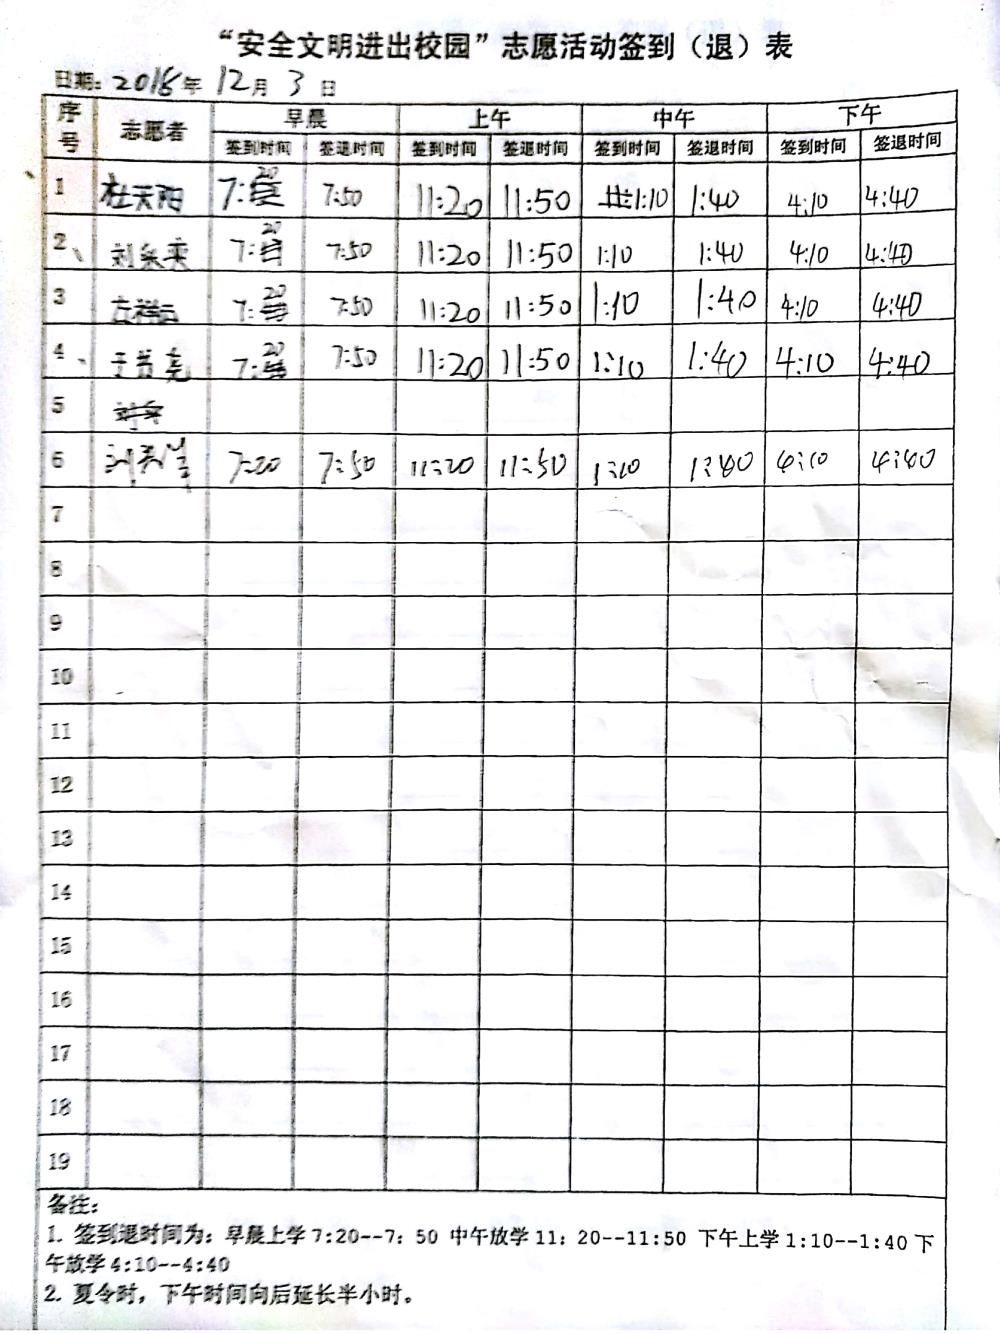 “安全文明进出校园”志愿活动签到（退）表
日期：2018年 12月 3日
序号 志愿者 早晨 上午 中午 下午
签到时间 签退时间 签到时间 签退时间 签到时间 签退时间 签到时间 签退时间
1 杜天阳 7:20 7:50 11:20 11:50 1:10 1:40 4:10 4:40
2、 7:20 7:50 11:20 11:50 1:10 1:40 4:10 4:40
3 7:20 7:50 11:20 11:50 1:10 1:40 4:10 4:40
4、 7:20 7:50 11:20 11:50 1:10 1:40 4:10 4:40
5
6 7:20 7:50 11:20 11:50 1:10 1:40 4:10 4:40
7
8
9
10
11
12
13
14
15
16
17
18
19
备注：
1. 签到退时间为：早晨上学7:20--7：50 中午放学11：20--11:50 下午上学1:10--1:40下
午放学4:10--4:40
2. 夏令时，下午时间向后延长半小时。